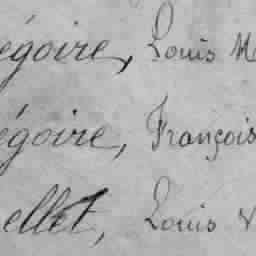 égoire, Louis M
égoire, François
ellet, Louis V